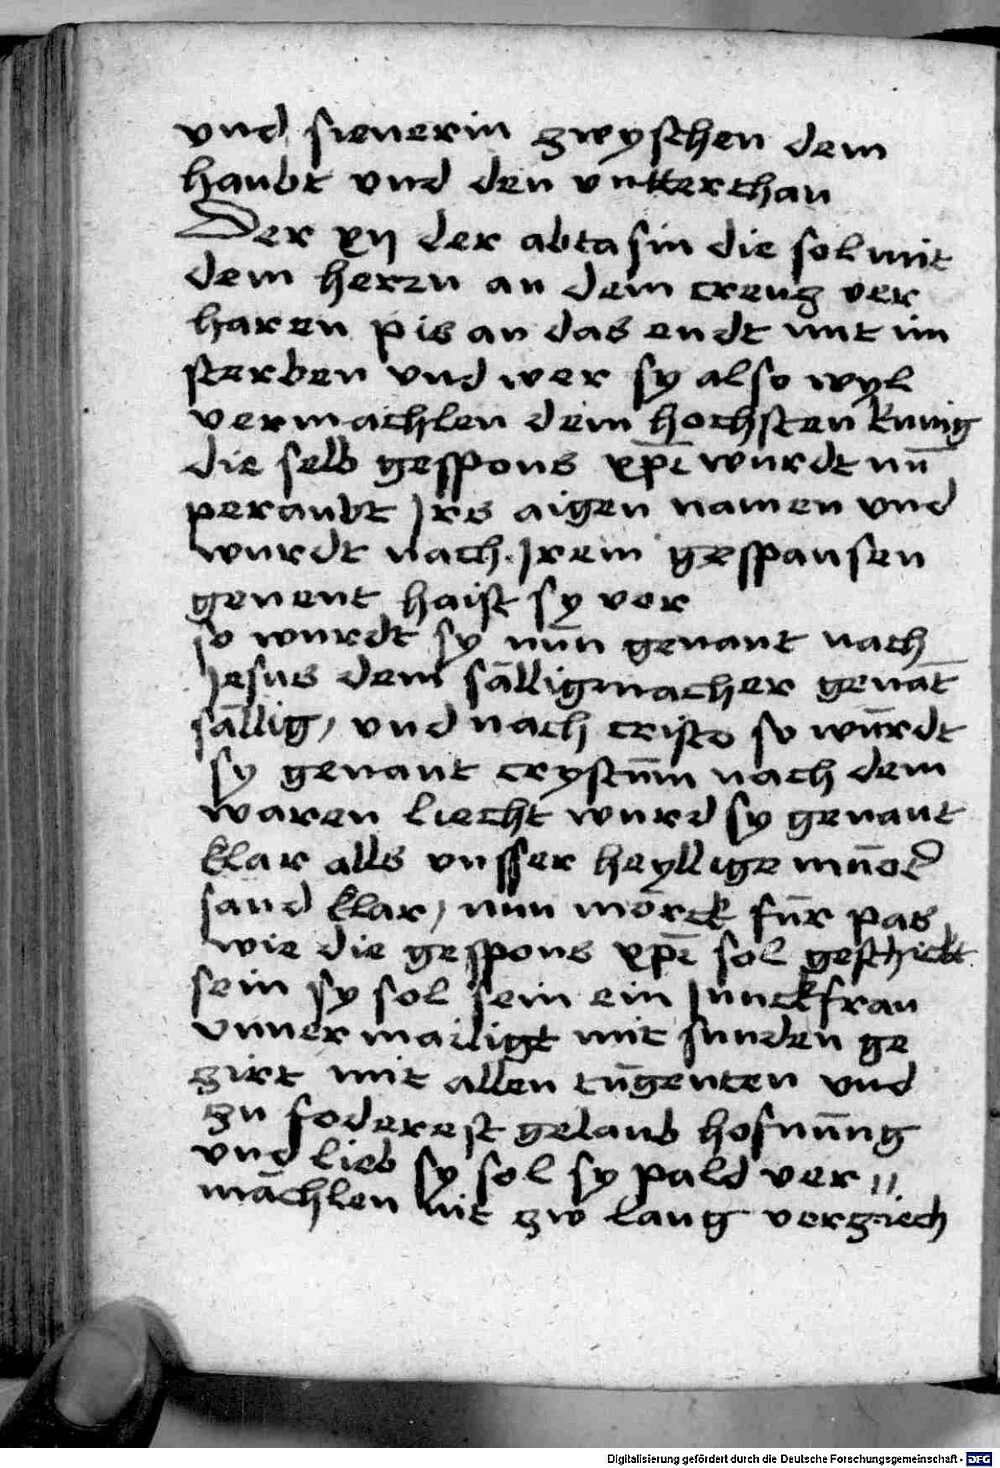 vnd sienerin zwyschen dem
haubt vnd den vntterthan
Der xij der abtasin die sol mit
dem herzn an dem creuz ver
haren pis an das endt mit im
sterben vnd wer sy also wyl
vermachlen dem hochsten kunig
die selb gespons xpī wurdt nū
peraubt Jrs aigen namen vnd
wurdt nach Jrem gespansen
genent haist sy vor
so wurdt sy nūn genant nach
Jesus dem sālligmacher genāt
sāllig / vnd nach cristo so wūrdt
sy genant crystūm nach dem
waren liecht wurd sy genant
klar alls vnsser heyllige mūod
sand klar / nun mörck fūr pas
wie die gespons xpī sol geschickt
sein sy sol sein ein Junckfrau
vnuermailigt mit sunden ge
zirt mit allen tūgenten vnd
zu foderest gelaub hofnūng
vnd lieb sy sol sy pald ver //
māchlen nit zw lang verziech
Digitalisierung gefördert durch die Deutsche Forschungsgemeinschaft - DFG